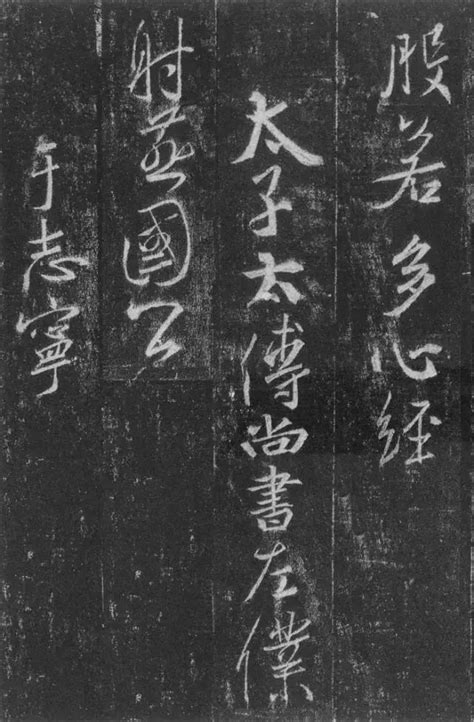 般若多心經
太子太傅尚書左僕
射燕國公
于志寧